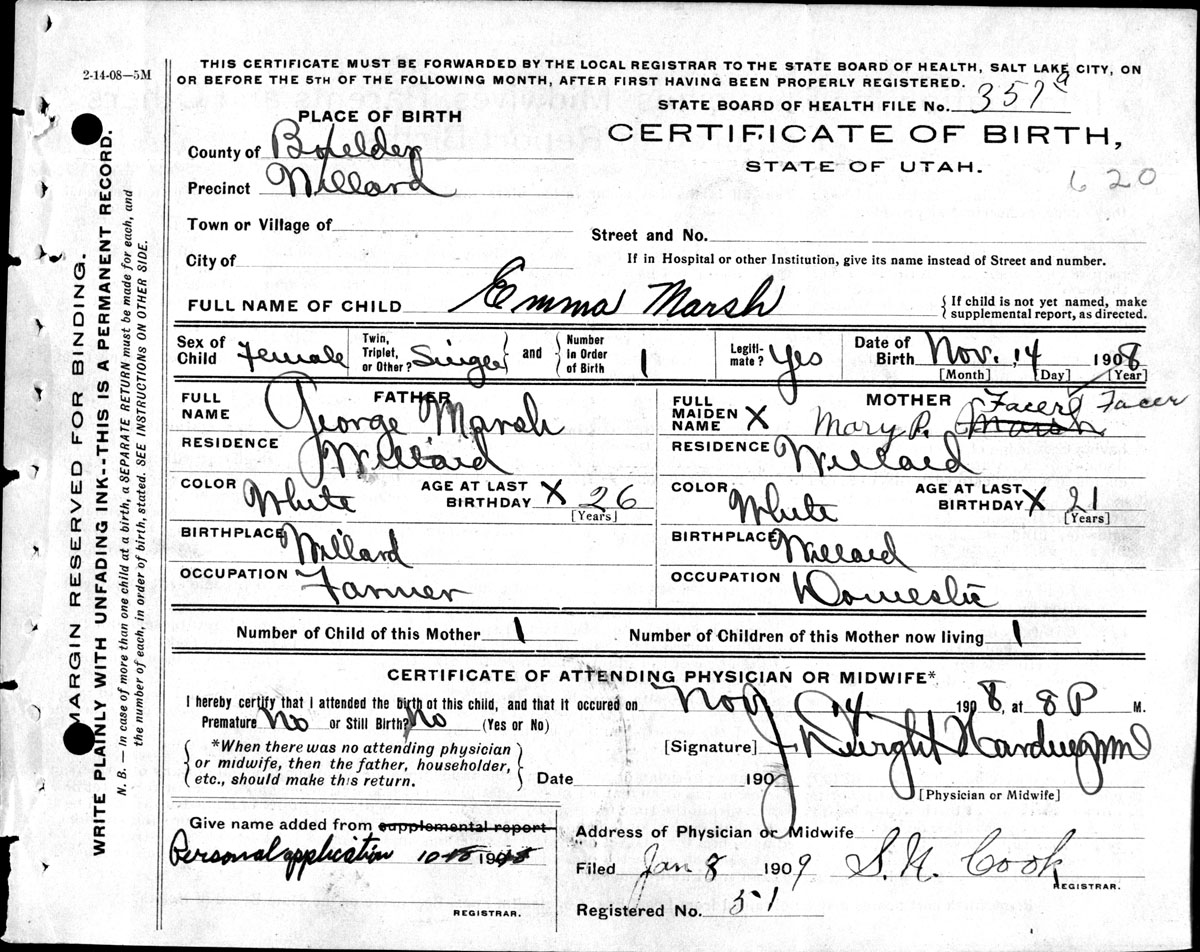 2-14-08—5M
THIS CERTIFICATE MUST BE FORWARDED BY THE LOCAL REGISTRAR TO THE STATE BOARD OF HEALTH, SALT LAKE CITY, ON
OR BEFORE THE 5TH OF THE FOLLOWING MONTH, AFTER FIRST HAVING BEEN PROPERLY REGISTERED.
STATE BOARD OF HEALTH FILE No. 357
PLACE OF BIRTH
CERTIFICATE OF BIRTH,
STATE OF UTAH.
620
County of Boxelder
Precinct Willard
Town or Village of
Street and No.
City of
If in Hospital or other Institution, give its name instead of Street and number.
FULL NAME OF CHILD Emma Marsh { If child is not yet named, make
supplemental report, as directed.
Sex of Child Female Twin, Triplet, or Other? Single } and { Number In Order of Birth 1 Legiti-mate? Yes Date of Birth Nov. 14 1908
[Month] [Day] [Year]
FATHER
FULL NAME George Marsh
RESIDENCE Willard
COLOR White AGE AT LAST BIRTHDAY X 26
[Years]
BIRTHPLACE Willard
OCCUPATION Farmer
MOTHER
FULL MAIDEN NAME X Mary P. Marsh Facer Facer
RESIDENCE Willard
COLOR White AGE AT LAST BIRTHDAY X 21
[Years]
BIRTHPLACE Willard
OCCUPATION Domestic
Number of Child of this Mother 1 Number of Children of this Mother now living 1
CERTIFICATE OF ATTENDING PHYSICIAN OR MIDWIFE*
I hereby certify that I attended the birth of this child, and that it occured on Nov 14 1908, at 8 P M.
Premature No or Still Birth? No (Yes or No)
{ *When there was no attending physician
or midwife, then the father, householder,
etc., should make this return. }
[Signature] J Dwight Harding MD
Date 190
[Physician or Midwife]
Give name added from supplemental report
Personal application 190
REGISTRAR.
Address of Physician or Midwife
Filed Jan 8 1909 S. N. Cook
REGISTRAR.
Registered No. 51
MARGIN RESERVED FOR BINDING.
WRITE PLAINLY WITH UNFADING INK--THIS IS A PERMANENT RECORD.
N. B. — In case of more than one child at a birth, a SEPARATE RETURN must be made for each, and
the number of each, in order of birth, stated. SEE INSTRUCTIONS ON OTHER SIDE.